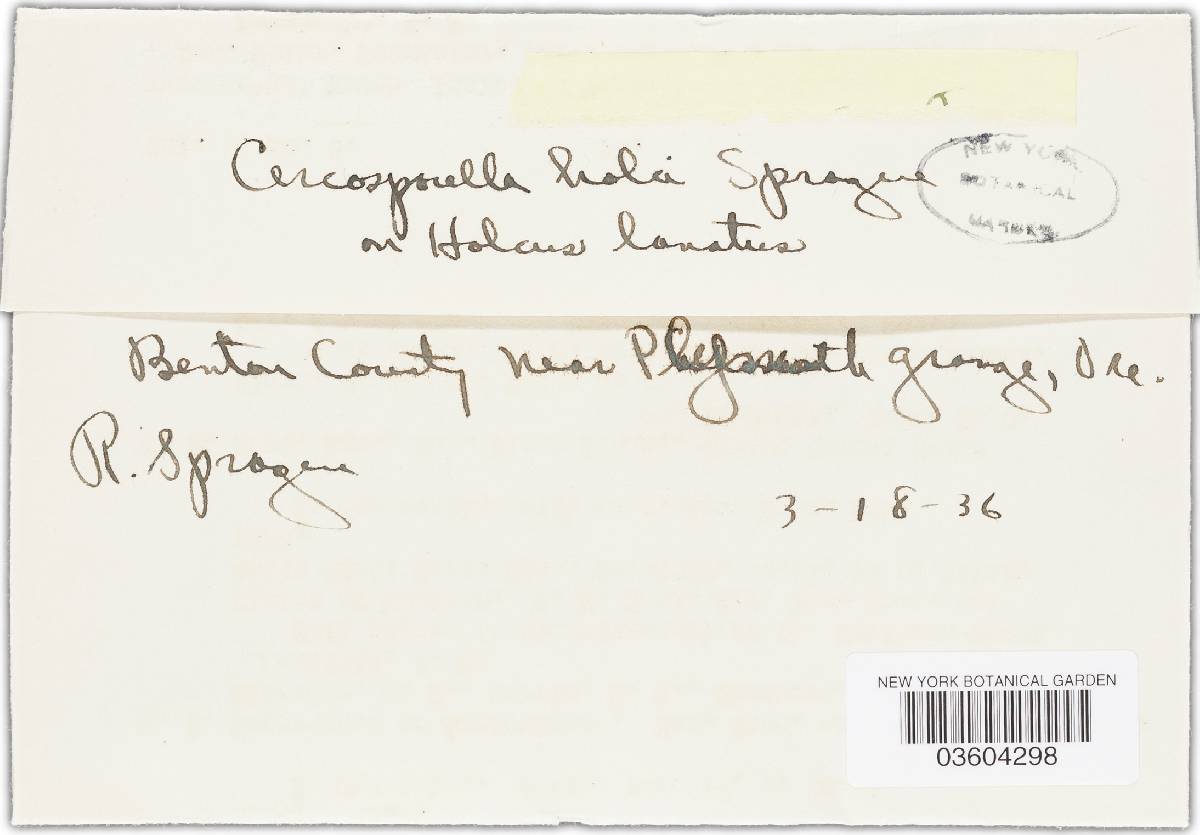 Cercosporella holci Sprague
NEW YORK
BOTANICAL
GARDEN
on Holcus lanatus
Benton County near Plymouth grange, Ore.
R. Sprague
3-18-36
NEW YORK BOTANICAL GARDEN
03604298